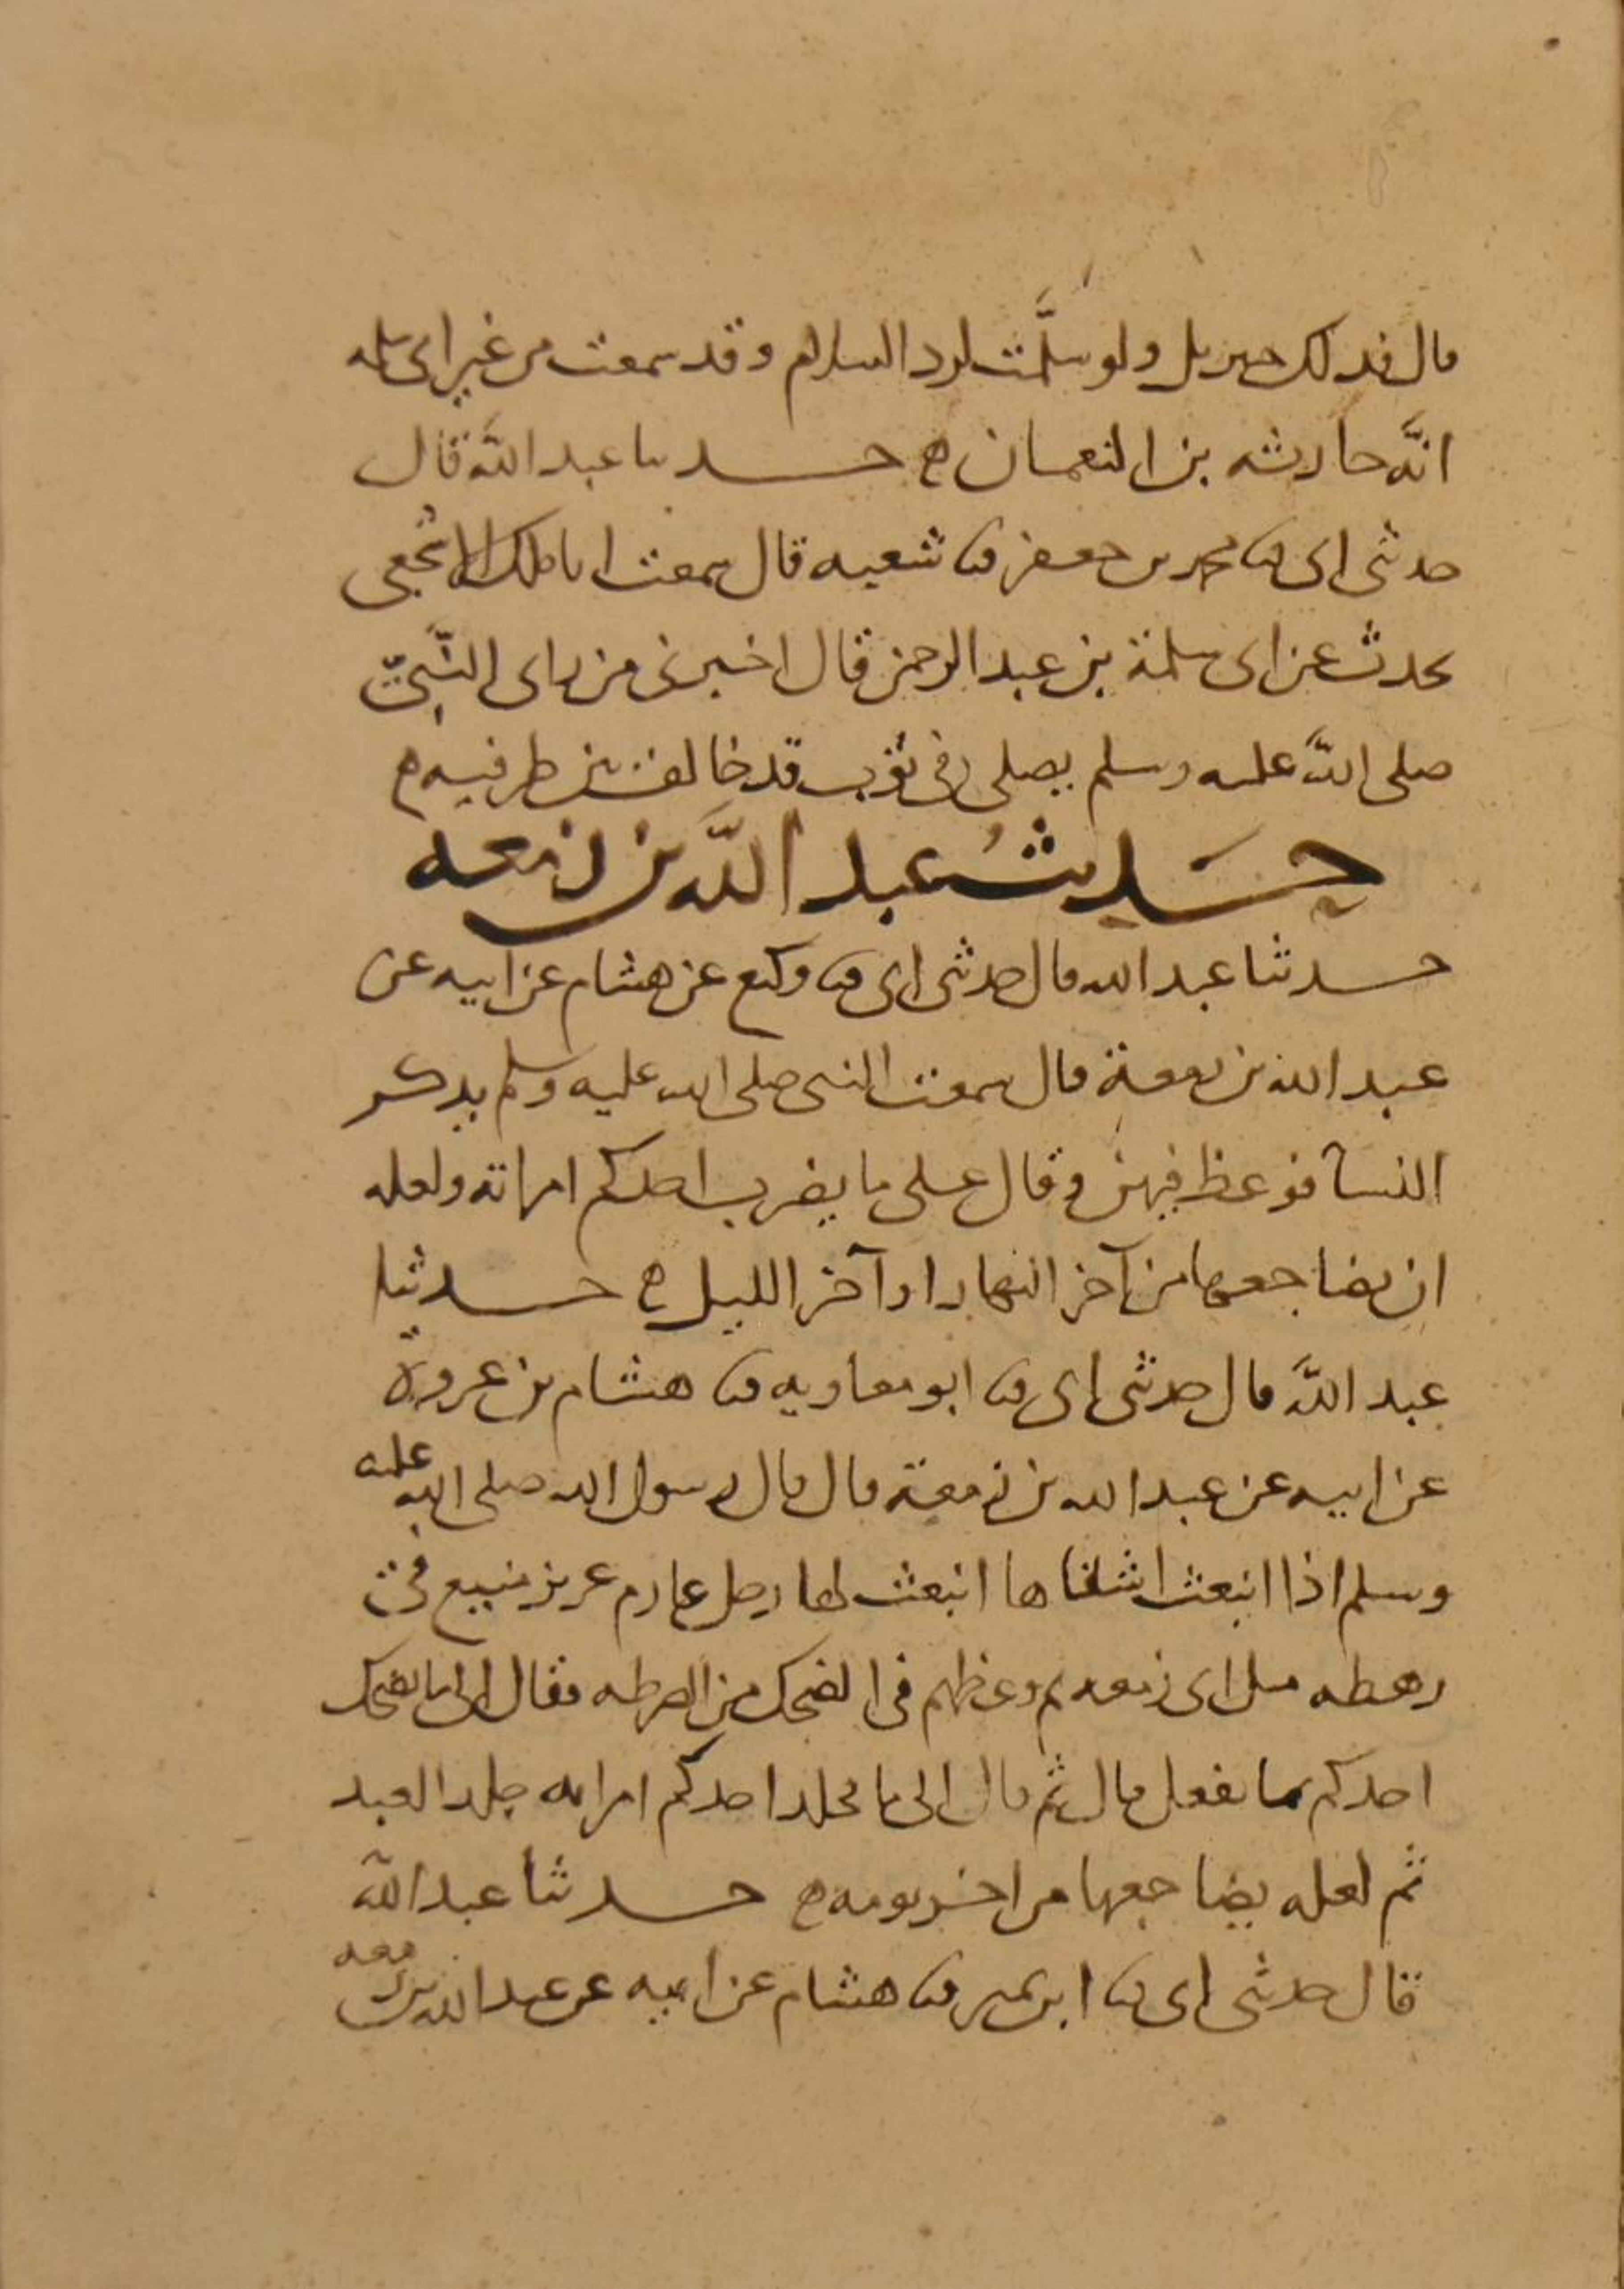 قال فذلك جبريل ولو سلَّمت لرد السلام وقد سمعت من غير ابى سلمه
انَّه حارثه بن النعمان ه حدثنا عبد اللَّه قال
حدثنى ابى ثنا محمد بن جعفر ثنا شعبه قال سمعت ابا ملك الاشجعى
يحدث عن ابى سلمة بن عبد الرحمن قال اخبرنى من راى النَّبىّ
صلى اللَّه عليه وسلم يصلى فى ثوب قد خالف بين طرفيه ه
حَديثُ عبد اللَّه بن زمعه
حدثنا عبد الله قال حدثنى ابى ثنا وكيع عن هشام عن ابيه عن
عبد الله بن زمعة قال سمعت النبى صلى الله عليه وسلم يذكر
النسآ فوعظ فيهن وقال على ما يضرب احدكم امراته ولعله
ان يضاجعها من آخر النهار او آخر الليل ه حدثنا
عبد اللَّه قال حدثنى ابى ثنا ابو معاويه ثنا هشام بن عروة
عن ابيه عن عبد الله بن زمعة قال قال رسول الله صلى الله عليه
وسلم اذا انبعث اشقاها انبعث لها رجل عارم عزيز منيع فى
رهطه مثل ابى زمعه ثم وعظهم فى الضحك من الضرطه فقال الى ما يضحك
احدكم مما يفعل قال ثم قال الى ما يجلد احدكم امراته جلد العبد
ثم لعله يضاجعها من اخر يومه ه حدثنا عبد اللَّه
قال حدثنى ابى ثنا ابن نمير ثنا هشام عن ابيه عن عبد الله بن زمعه